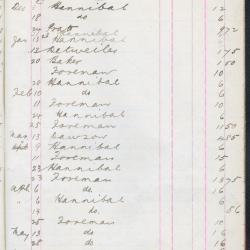 Dec 5 Hannibal 12
18 do 6
24 Pratt 9 72
Jan 13 Hannibal 6
12 Detweiler 1 75
20 Baker 1 50
Foreman 10
28 Hannibal 6
Feb 10 do 6
11 Foreman 10
24 Hannibal 6
25 Foreman 11 50
Mar 13 Dawson 85
9 Hannibal 6
11 Foreman 15
23 Hannibal 6
23 Foreman 18 75
Apl 6 do 16
" 6 Hannibal 6
14 do 56
25 Foreman 10
May 13 do 16
28 do 16